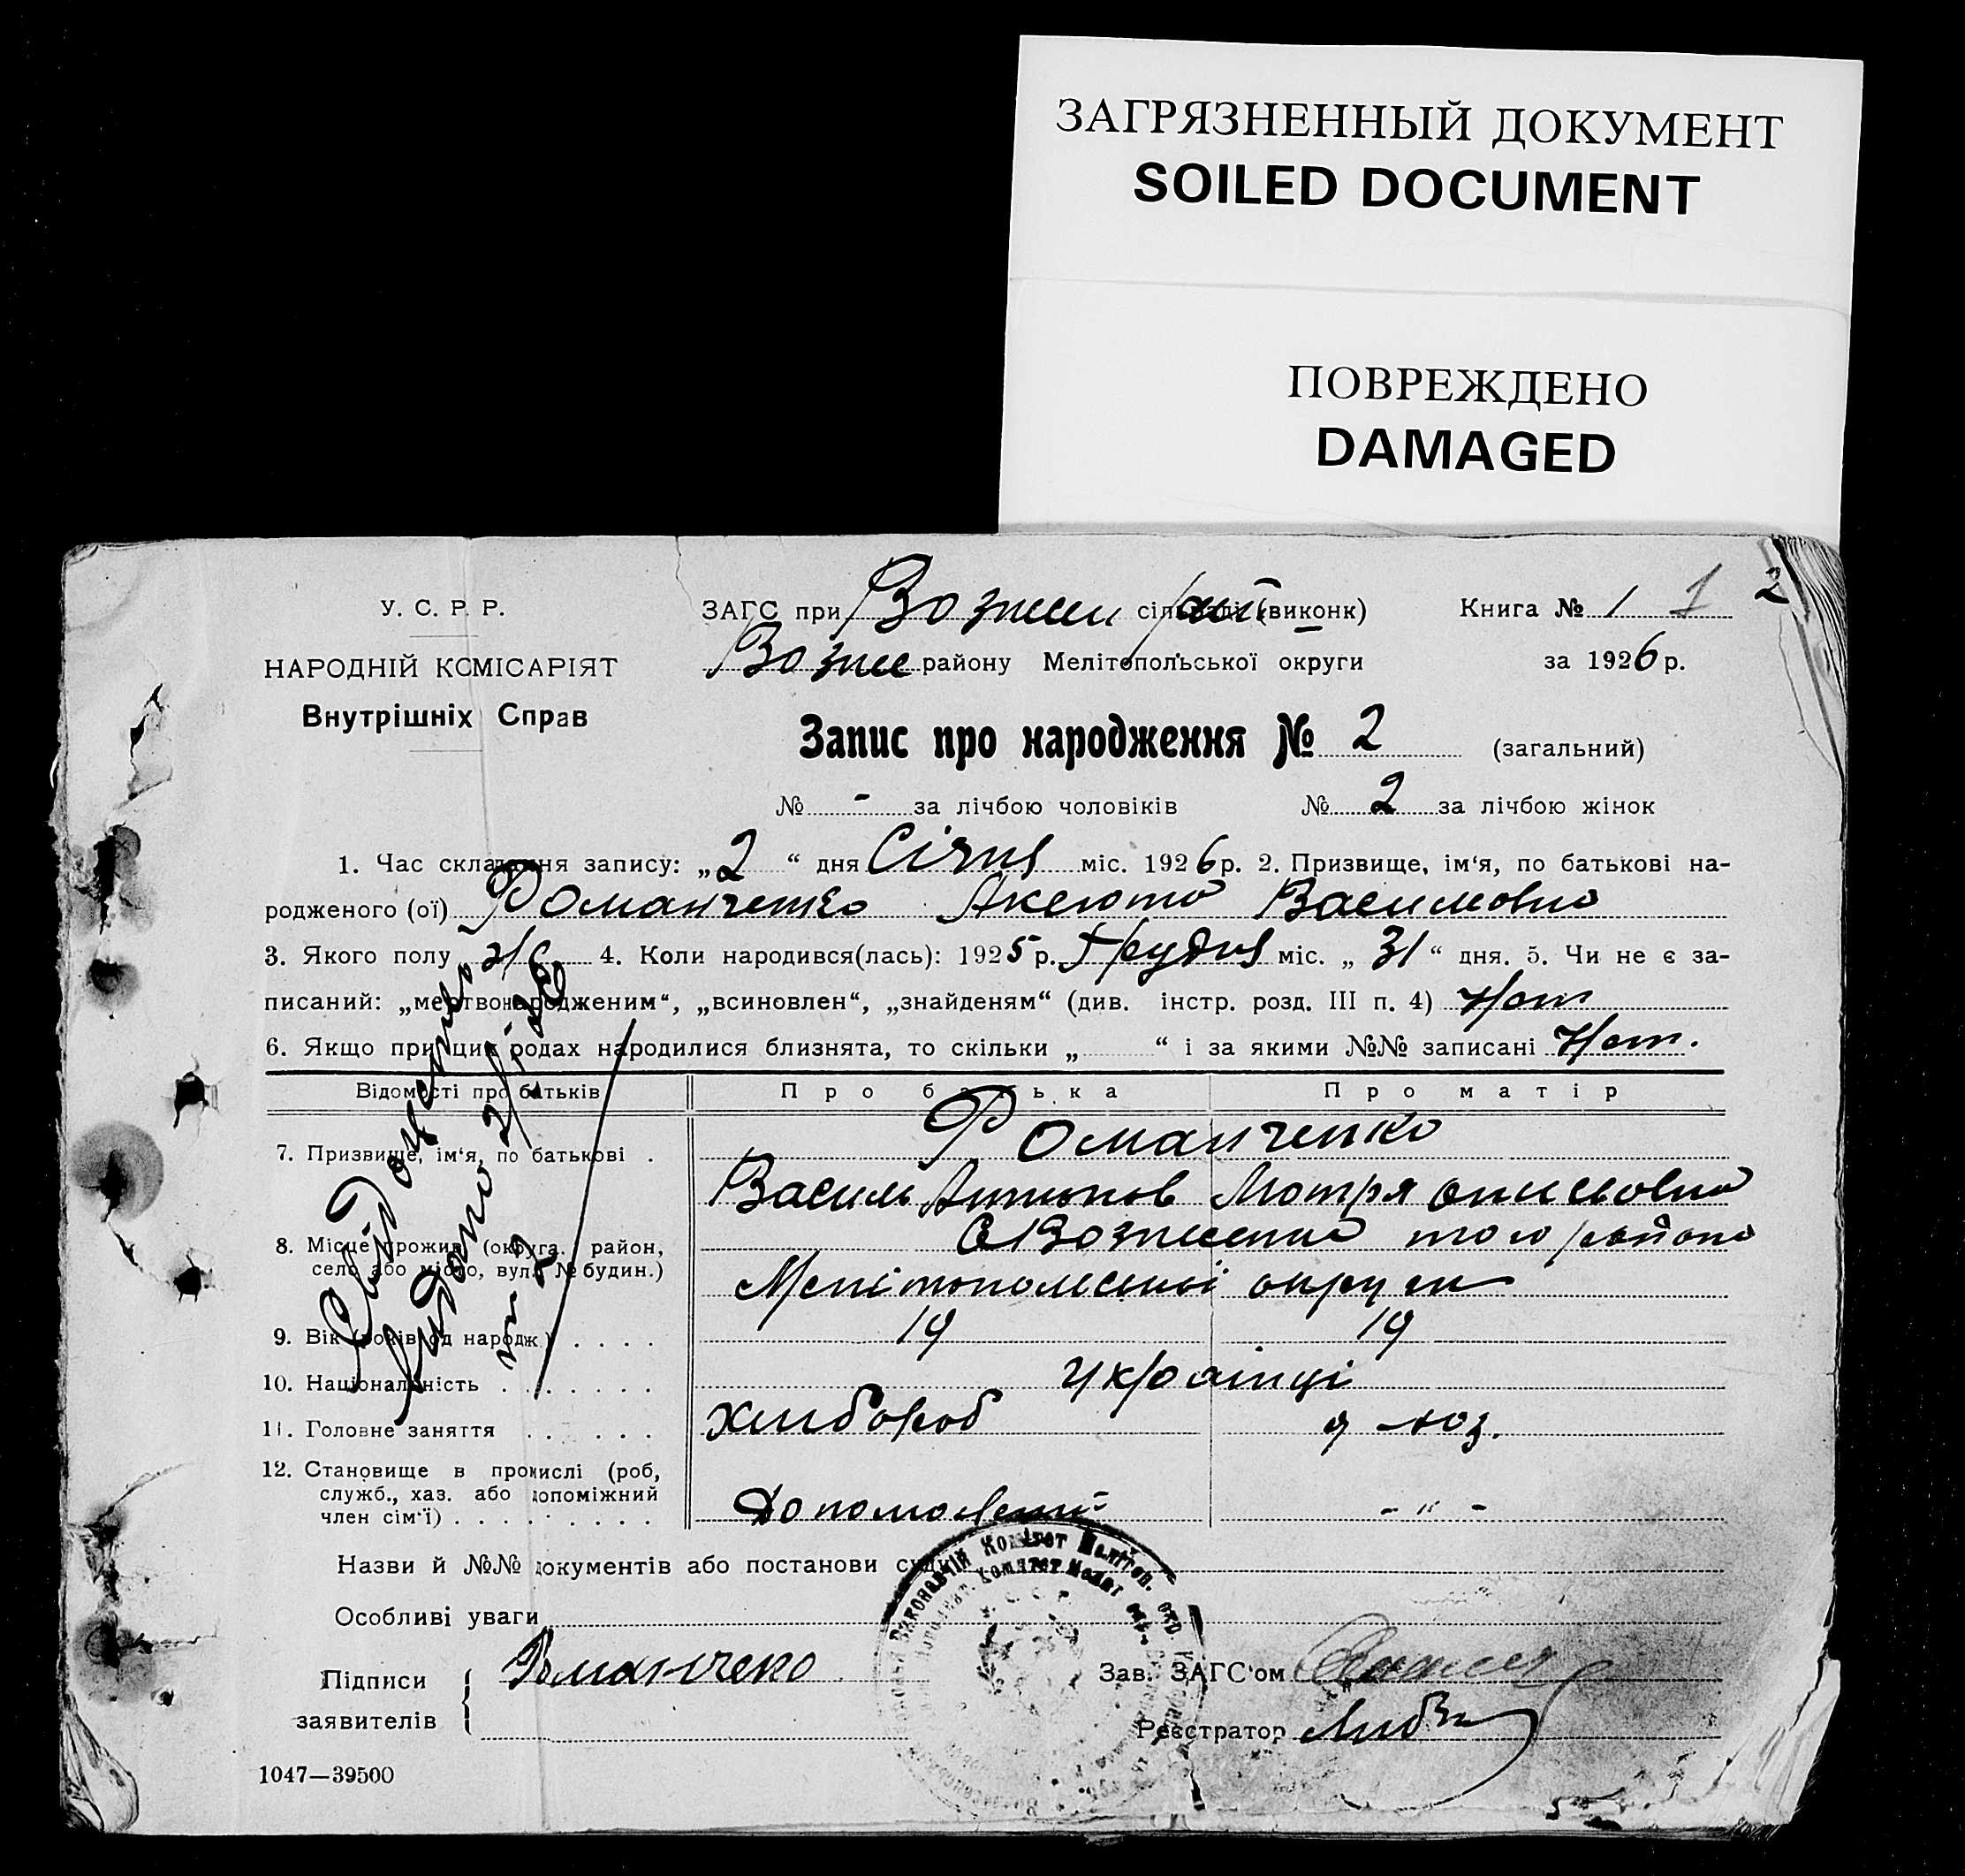 ЗАГРЯЗНЕННЫЙ ДОКУМЕНТ
SOILED DOCUMENT
ПОВРЕЖДЕНО
DAMAGED
У. С. Р. Р.
НАРОДНІЙ КОМІСАРІЯТ
Внутрішніх Справ
ЗАГС при Возне сільраді (виконк)
Возне району Мелітопольської округи
Книга № 1 1 2
за 1926 р.
Запис про народження № 2 (загальний)
№ - за лічбою чоловіків № 2 за лічбою жінок
1. Час складання запису: „2“ дня Січня міс. 1926 р. 2. Призвище, ім'я, по батькові на-
родженого (ої) Романченко Аксюта Василовна
3. Якого полу ж 4. Коли народився(лась): 1925 р. Грудня міс. „31“ дня. 5. Чи не є за-
писаний: „мертвонародженим“, „всиновлен“, „знайденям“ (див. інстр. розд. III п. 4) Нет
6. Якщо при цих родах народилися близнята, то скільки „ “ і за якими №№ записані Нет.
Відомості про батьків Про батька Про матір
7. Призвище, ім'я, по батькові . Романченко
Василь Антонов Мотря
8. Місце прожив. (округа, район, село або місто, вул. № будин.) Вознесенка того района
Мелітопольської округи
9. Вік (років од народж.) . . . . 19 19
10. Національність . . . . . . . Українці
11. Головне заняття . . . . . . хлибороб хоз.
12. Становище в промислі (роб, служб., хаз. або допоміжний член сім'ї) . . . . . . . . . - " -
Свідоцтво
видано
№ 2
Назви й №№ документів або постанови судів
Особливі уваги
Підписи
заявителів
Романченко
Зав. ЗАГС'ом
Реєстратор
1047—39500